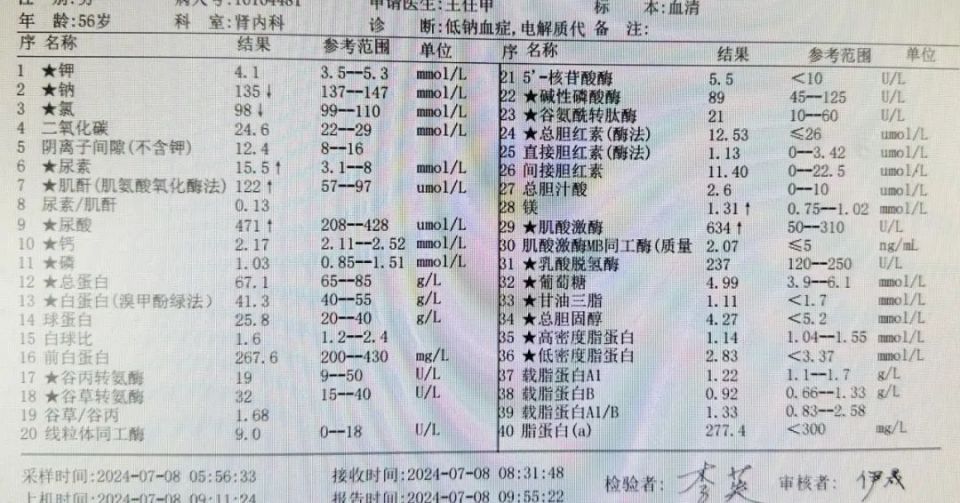 性 别:男 病人号:10104481 申请医生:王任申 标 本:血清
年 龄:56岁 科 室:肾内科 诊 断:低钠血症,电解质代 备 注:
序 名称 结果 参考范围 单位 序 名称 结果 参考范围 单位
1 ★钾 4.1 3.5--5.3 mmol/L 21 5'-核苷酸酶 5.5 <10 U/L
2 ★钠 135↓ 137--147 mmol/L 22 ★碱性磷酸酶 89 45--125 U/L
3 ★氯 98↓ 99--110 mmol/L 23 ★谷氨酰转肽酶 21 10--60 U/L
4 二氧化碳 24.6 22--29 mmol/L 24 ★总胆红素(酶法) 12.53 ≤26 umol/L
5 阴离子间隙(不含钾) 12.4 8--16 25 直接胆红素(酶法) 1.13 0--3.42 umol/L
6 ★尿素 15.5↑ 3.1--8 mmol/L 26 间接胆红素 11.40 0--22.5 umol/L
7 ★肌酐(肌氨酸氧化酶法) 122↑ 57--97 umol/L 27 总胆汁酸 2.6 0--10 umol/L
8 尿素/肌酐 0.13 28 镁 1.31↑ 0.75--1.02 mmol/L
9 ★尿酸 471↑ 208--428 umol/L 29 ★肌酸激酶 634↑ 50--310 U/L
10 ★钙 2.17 2.11--2.52 mmol/L 30 肌酸激酶MB同工酶(质量 2.07 ≤5 ng/mL
11 ★磷 1.03 0.85--1.51 mmol/L 31 ★乳酸脱氢酶 237 120--250 U/L
12 ★总蛋白 67.1 65--85 g/L 32 ★葡萄糖 4.99 3.9--6.1 mmol/L
13 ★白蛋白(溴甲酚绿法) 41.3 40--55 g/L 33 ★甘油三脂 1.11 <1.7 mmol/L
14 球蛋白 25.8 20--40 g/L 34 ★总胆固醇 4.27 <5.2 mmol/L
15 白球比 1.6 1.2--2.4 35 ★高密度脂蛋白 1.14 1.04--1.55 mmol/L
16 前白蛋白 267.6 200--430 mg/L 36 ★低密度脂蛋白 2.83 <3.37 mmol/L
17 ★谷丙转氨酶 19 9--50 U/L 37 载脂蛋白A1 1.22 1.1--1.7 g/L
18 ★谷草转氨酶 32 15--40 U/L 38 载脂蛋白B 0.92 0.66--1.33 g/L
19 谷草/谷丙 1.68 39 载脂蛋白A1/B 1.33 0.83--2.58
20 线粒体同工酶 9.0 0--18 U/L 40 脂蛋白(a) 277.4 <300 mg/L
采样时间:2024-07-08 05:56:33 接收时间:2024-07-08 08:31:48 检验者: 李英 审核者:
上机时间:2024-07-08 09:11:24 报告时间:2024-07-08 09:55:22